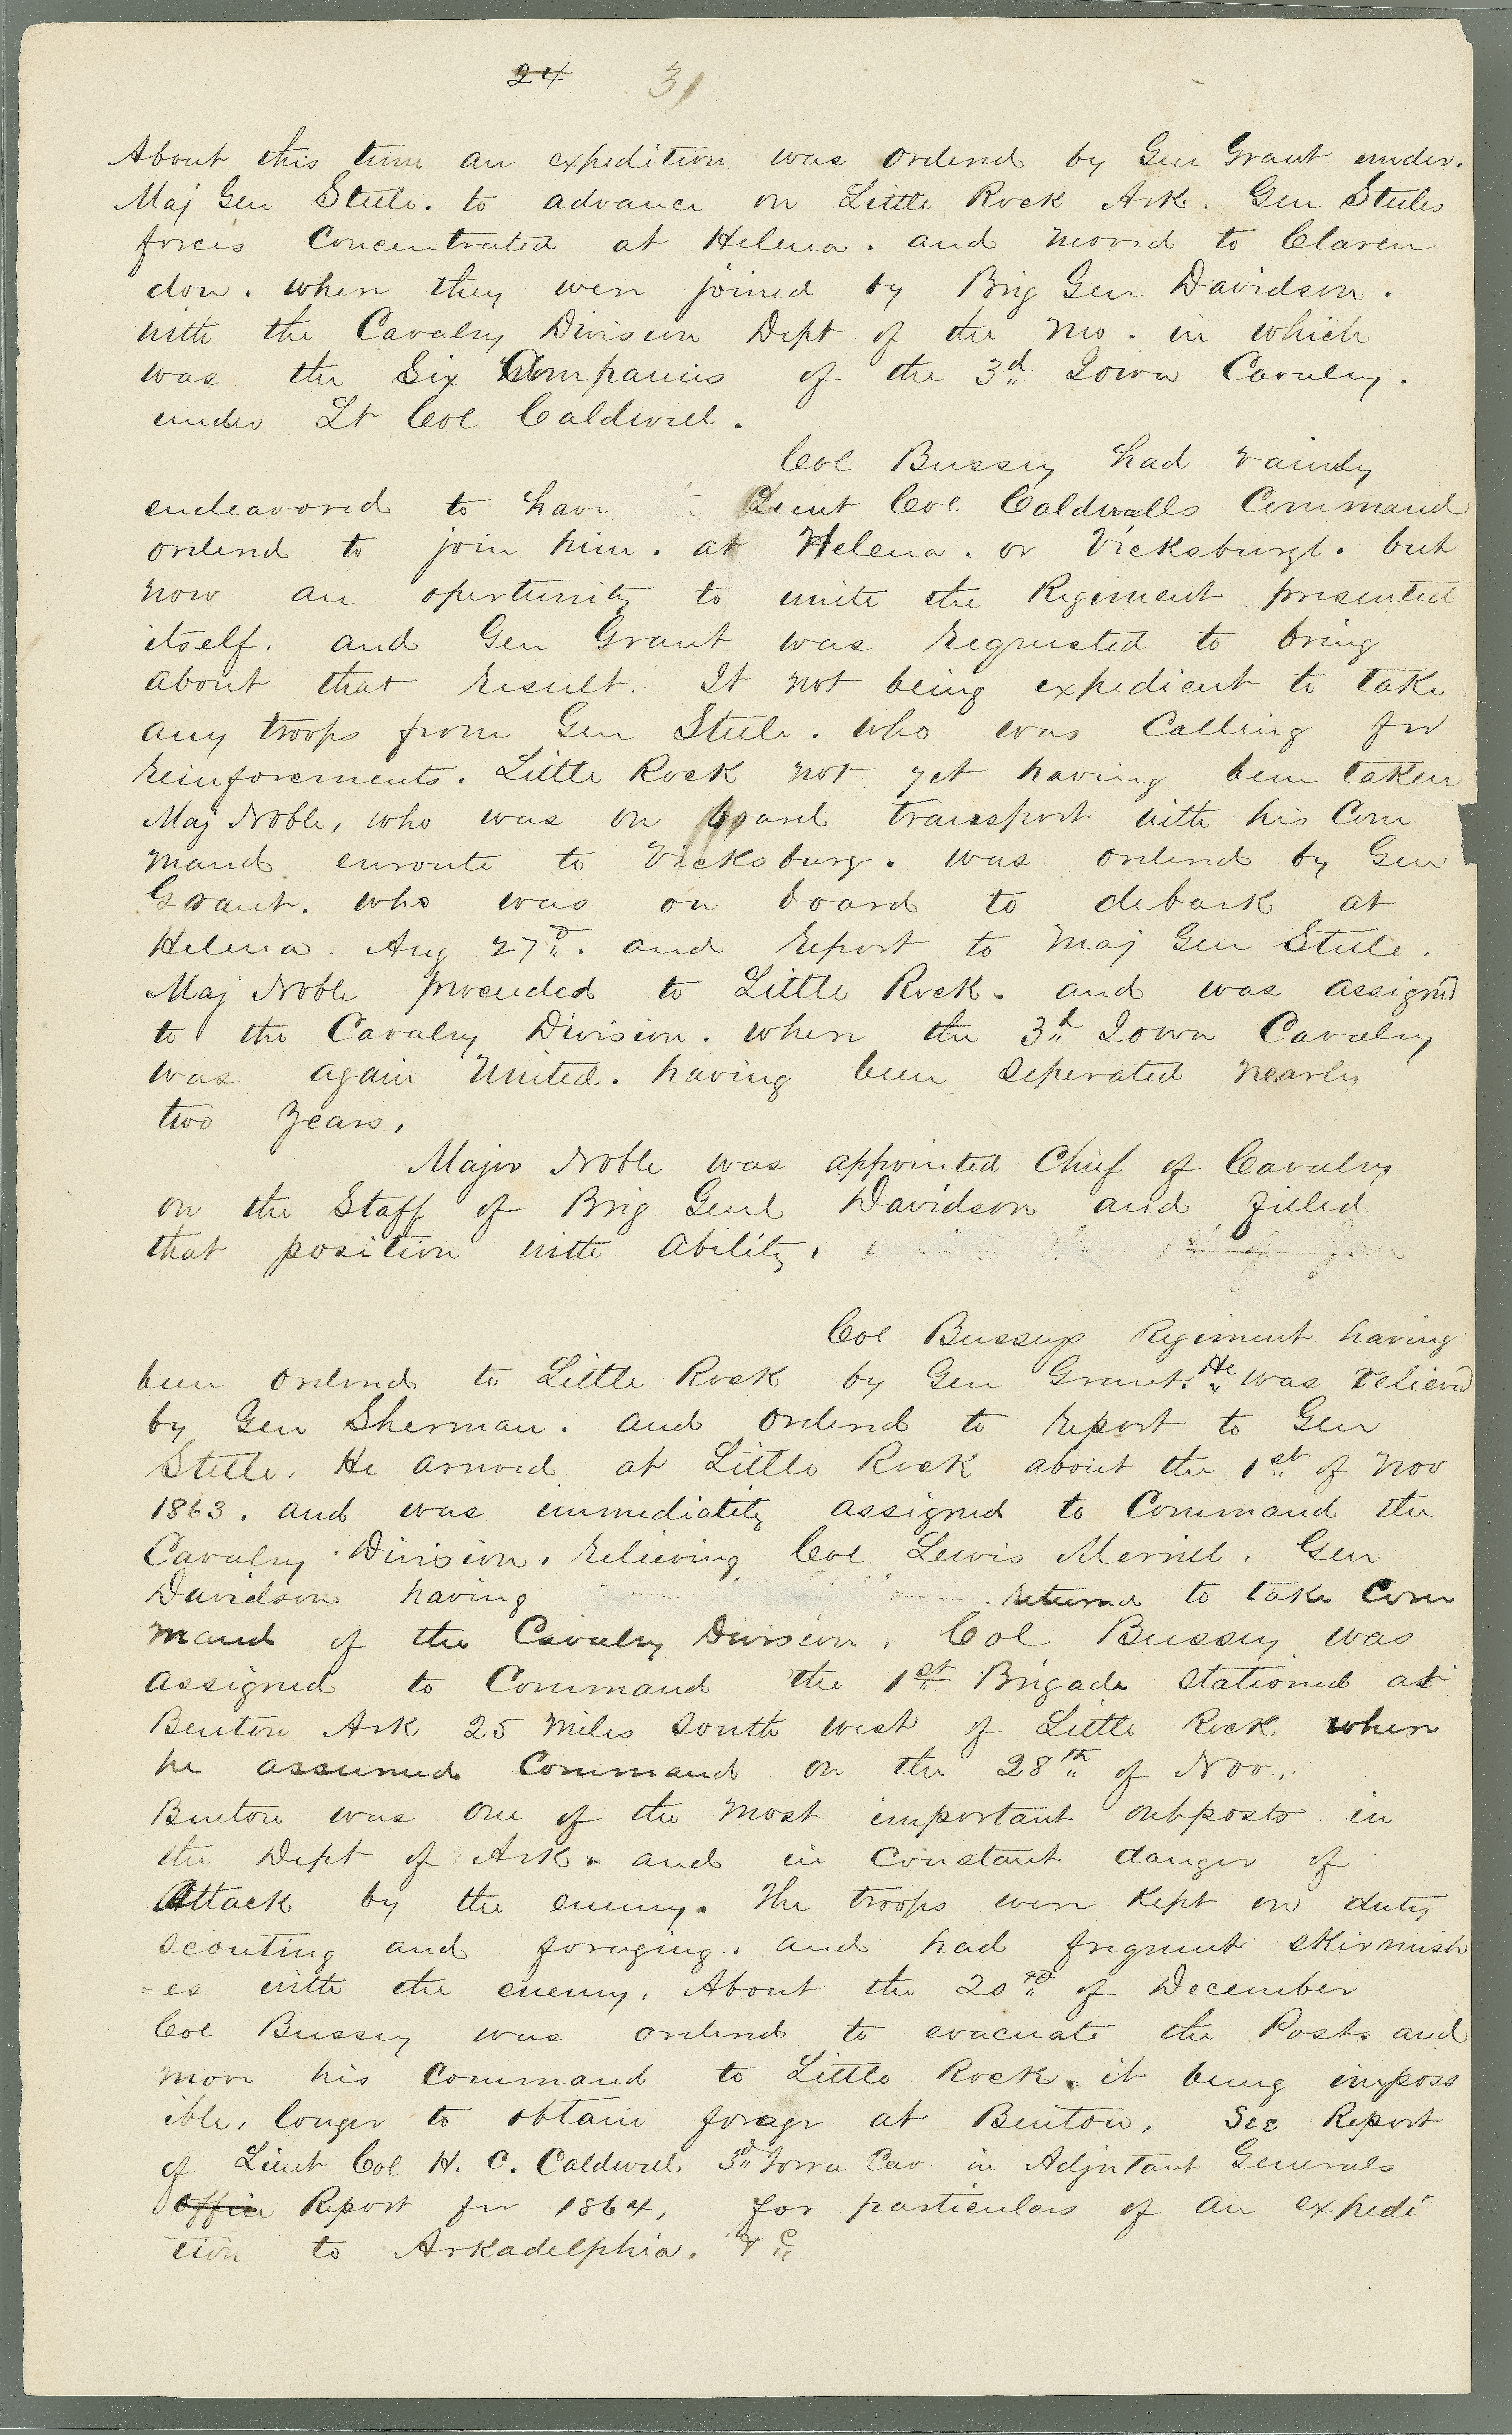 24 31
About this time an expedition was ordered by Gen Grant under.
Maj Gen Steele. to advance on Little Rock Ark. Gen Steeles
forces Concentrated at Helena. and moved to Claren
don. when they were joined by Brig Gen Davidson.
with the Cavalry Division Dept of the Mo. in which
was the Six Companies of the 3d Iowa Cavalry.
under Lt Col Caldwell.
Col Bussey had vainly
endeavored to have Lieut Col Caldwells Command
ordered to join him. at Helena. or Vicksburgh. but
now an opertunity to unite the Regiment presented
itself. and Gen Grant was requested to bring
about that result. It not being expedient to take
any troops from Gen Steele. who was Calling for
reinforcements. Little Rock not yet having been taken
Maj Noble, who was on board transport with his Com
mand enroute to Vicksburg. was ordered by Gen
Grant. who was on board to debark at
Helena. Aug 27th. and report to Maj Gen Steele.
Maj Noble proceeded to Little Rock. and was assigned
to the Cavalry Division. where the 3d Iowa Cavalry
was again United. having been seperated nearly
two years.
Major Noble was appointed Chief of Cavalry
on the Staff of Brig Genl Davidson and filled
that position with ability. 1st of Jan
Col Busseys Regiment having
been ordered to Little Rock by Gen Grant. He was relieved
by Gen Sherman. and ordered to report to Gen
Steele. He arrived at Little Rock about the 1st of Nov
1863. and was immediately assigned to Command the
Cavalry Division. relieving Col Lewis Merrill. Gen
Davidson having returned to take Com
mand of the Cavalry Division. Col Bussey was
assigned to Command the 1st Brigade stationed at
Benton Ark 25 miles south west of Little Rock when
he assumed Command on the 28th of Nov.
Benton was one of the most important outposts in
the Dept of Ark. and in constant danger of
Attack by the enemy. The troops were kept on duty
scouting and foraging. and had frequent skirmish
=es with the enemy. About the 20th of December
Col Bussey was ordered to evacuate the Post. and
move his Command to Little Rock. it being imposs
ible, longer to obtain forage at Benton. See Report
of Lieut Col H. C. Caldwell 3d Iowa Cav. in Adjutant Generals
Office Report for 1864, for particulars of an expedi
tion to Arkadelphia. &c